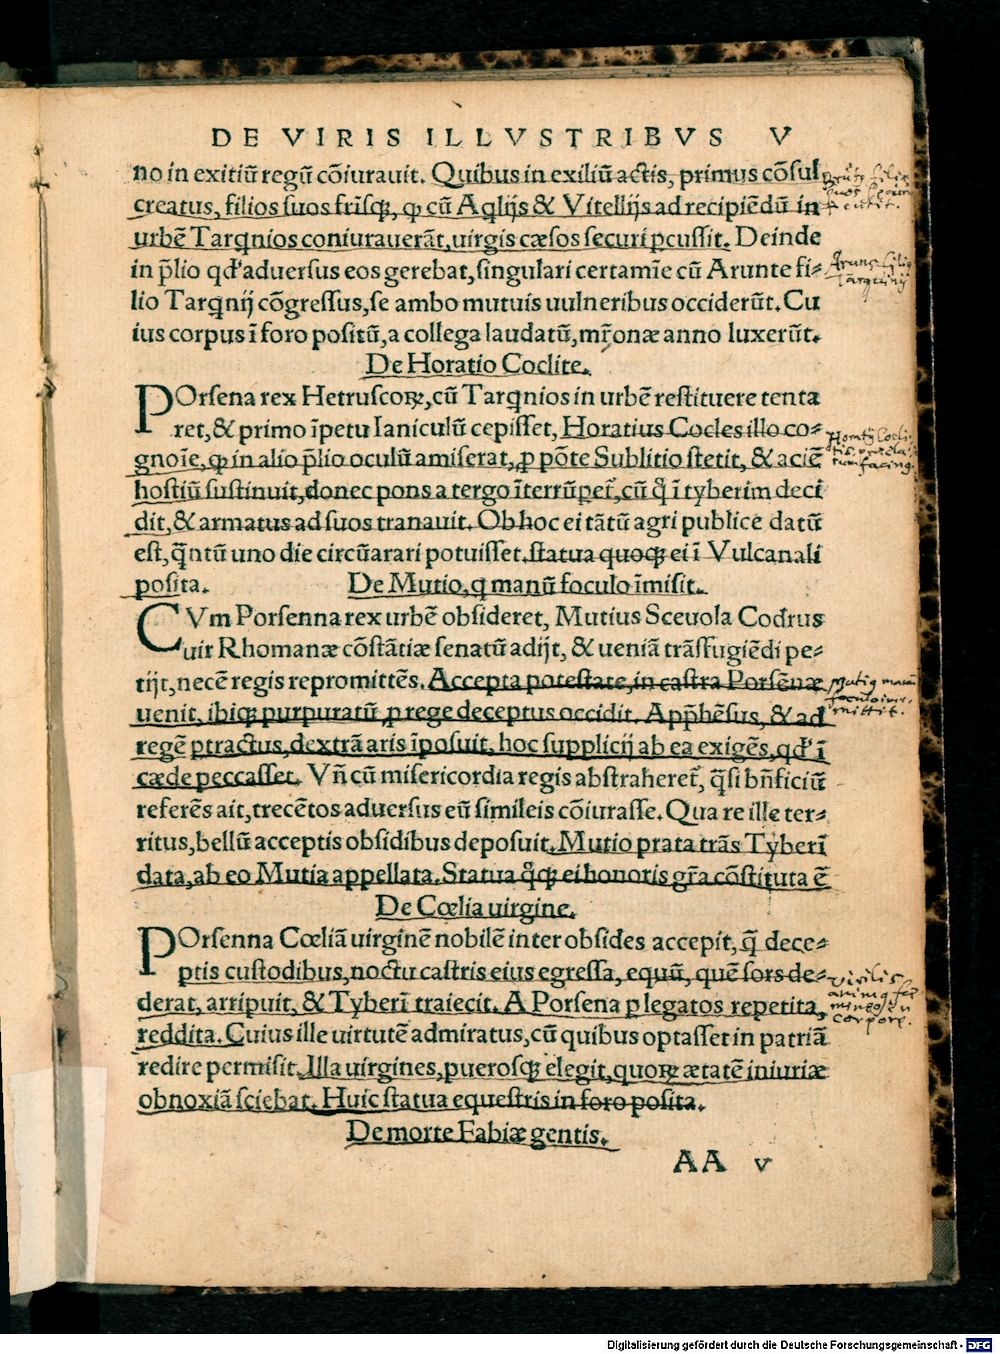 DE VIRIS ILLVSTRIBVS V
no in exitiũ regũ cõiurauit. Quibus in exiliũ actis, primus cõsul
creatus, filios suos frīsq;, ꝙ cũ Aqlijs & Vitellijs ad recipiẽdũ in
urbẽ Tarqnios coniurauerãt, uirgis cæsos securi ꝑcussit. Deinde
in p̃lio qđ aduersus eos gerebat, singulari certamĩe cũ Arunte fi-
lio Tarqnij cõgressus, se ambo mutuis uulneribus occiderũt. Cu
ius corpus ĩ foro positũ, a collega laudatũ, mr̃onæ anno luxerũt.
De Horatio Coclite.
POrsena rex Hetruscoꝝ, cũ Tarqnios in urbẽ restituere tenta
ret, & primo ĩpetu Ianiculũ cepisset, Horatius Cocles illo co-
gnoĩe, ꝙ in alio p̃lio oculũ amiserat, ꝓ põte Sublitio stetit, & aciẽ
hostiũ sustinuit, donec pons a tergo ĩterrũperet̃, cũ q̃ ĩ tyberim deci
dit, & armatus ad suos tranauit. Ob hoc ei tãtũ agri publice datũ
est, q̃ntũ uno die circũarari potuisset. statua quoq; ei ĩ Vulcanali
posita. De Mutio, q manũ foculo ĩmisit.
CVm Porsenna rex urbẽ obsideret, Mutius Sceuola Codrus
uir Rhomanæ cõstãtiæ senatũ adijt, & ueniã trãsfugiẽdi pe-
tijt, necẽ regis repromittẽs. Accepta potestate, in castra Porsẽnæ
uenit. ibiq; purpuratũ ꝓ rege deceptus occidit. App̃hẽsus, & ad
regẽ ptractus, dextrã aris ĩposuit. hoc supplicij ab ea exigẽs, qđ ĩ
cæde peccasset. Vñ cũ misericordia regis abstraheret̃, q̃si bñficiũ
referẽs ait, trecẽtos aduersus eũ simileis cõiurasse. Qua re ille ter-
ritus, bellũ acceptis obsidibus deposuit. Mutio prata trãs Tyberĩ
data, ab eo Mutia appellata. Statua q̊q; ei honoris gr̃a cõstituta ẽ
De Cœlia uirgine.
POrsenna Cœliã uirginẽ nobilẽ inter obsides accepit, q̃ dece-
ptis custodibus, noctu castris eius egressa, equũ, quẽ sors de-
derat, arripuit, & Tyberĩ traiecit. A Porsena ꝑ legatos repetita,
reddita. Cuius ille uirtutẽ admiratus, cũ quibus optasset in patriã
redire permisit. Illa uirgines, puerosq; elegit, quoꝝ ætatẽ iniuriæ
obnoxiã sciebat. Huic statua equestris in foro posita.
De morte Fabiæ gentis.
AA v
Digitalisierung gefördert durch die Deutsche Forschungsgemeinschaft - DFG